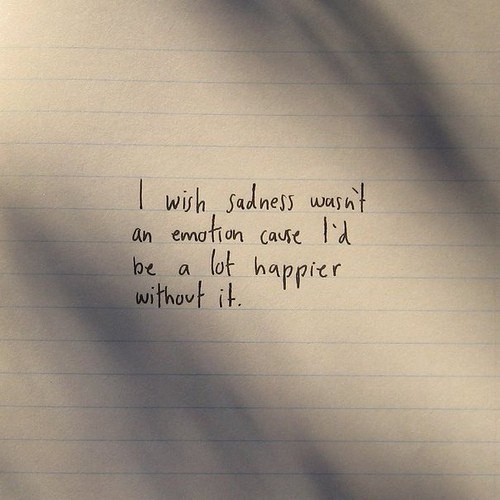 I wish sadness wasn't
an emotion cause I'd
be a lot happier
without it.